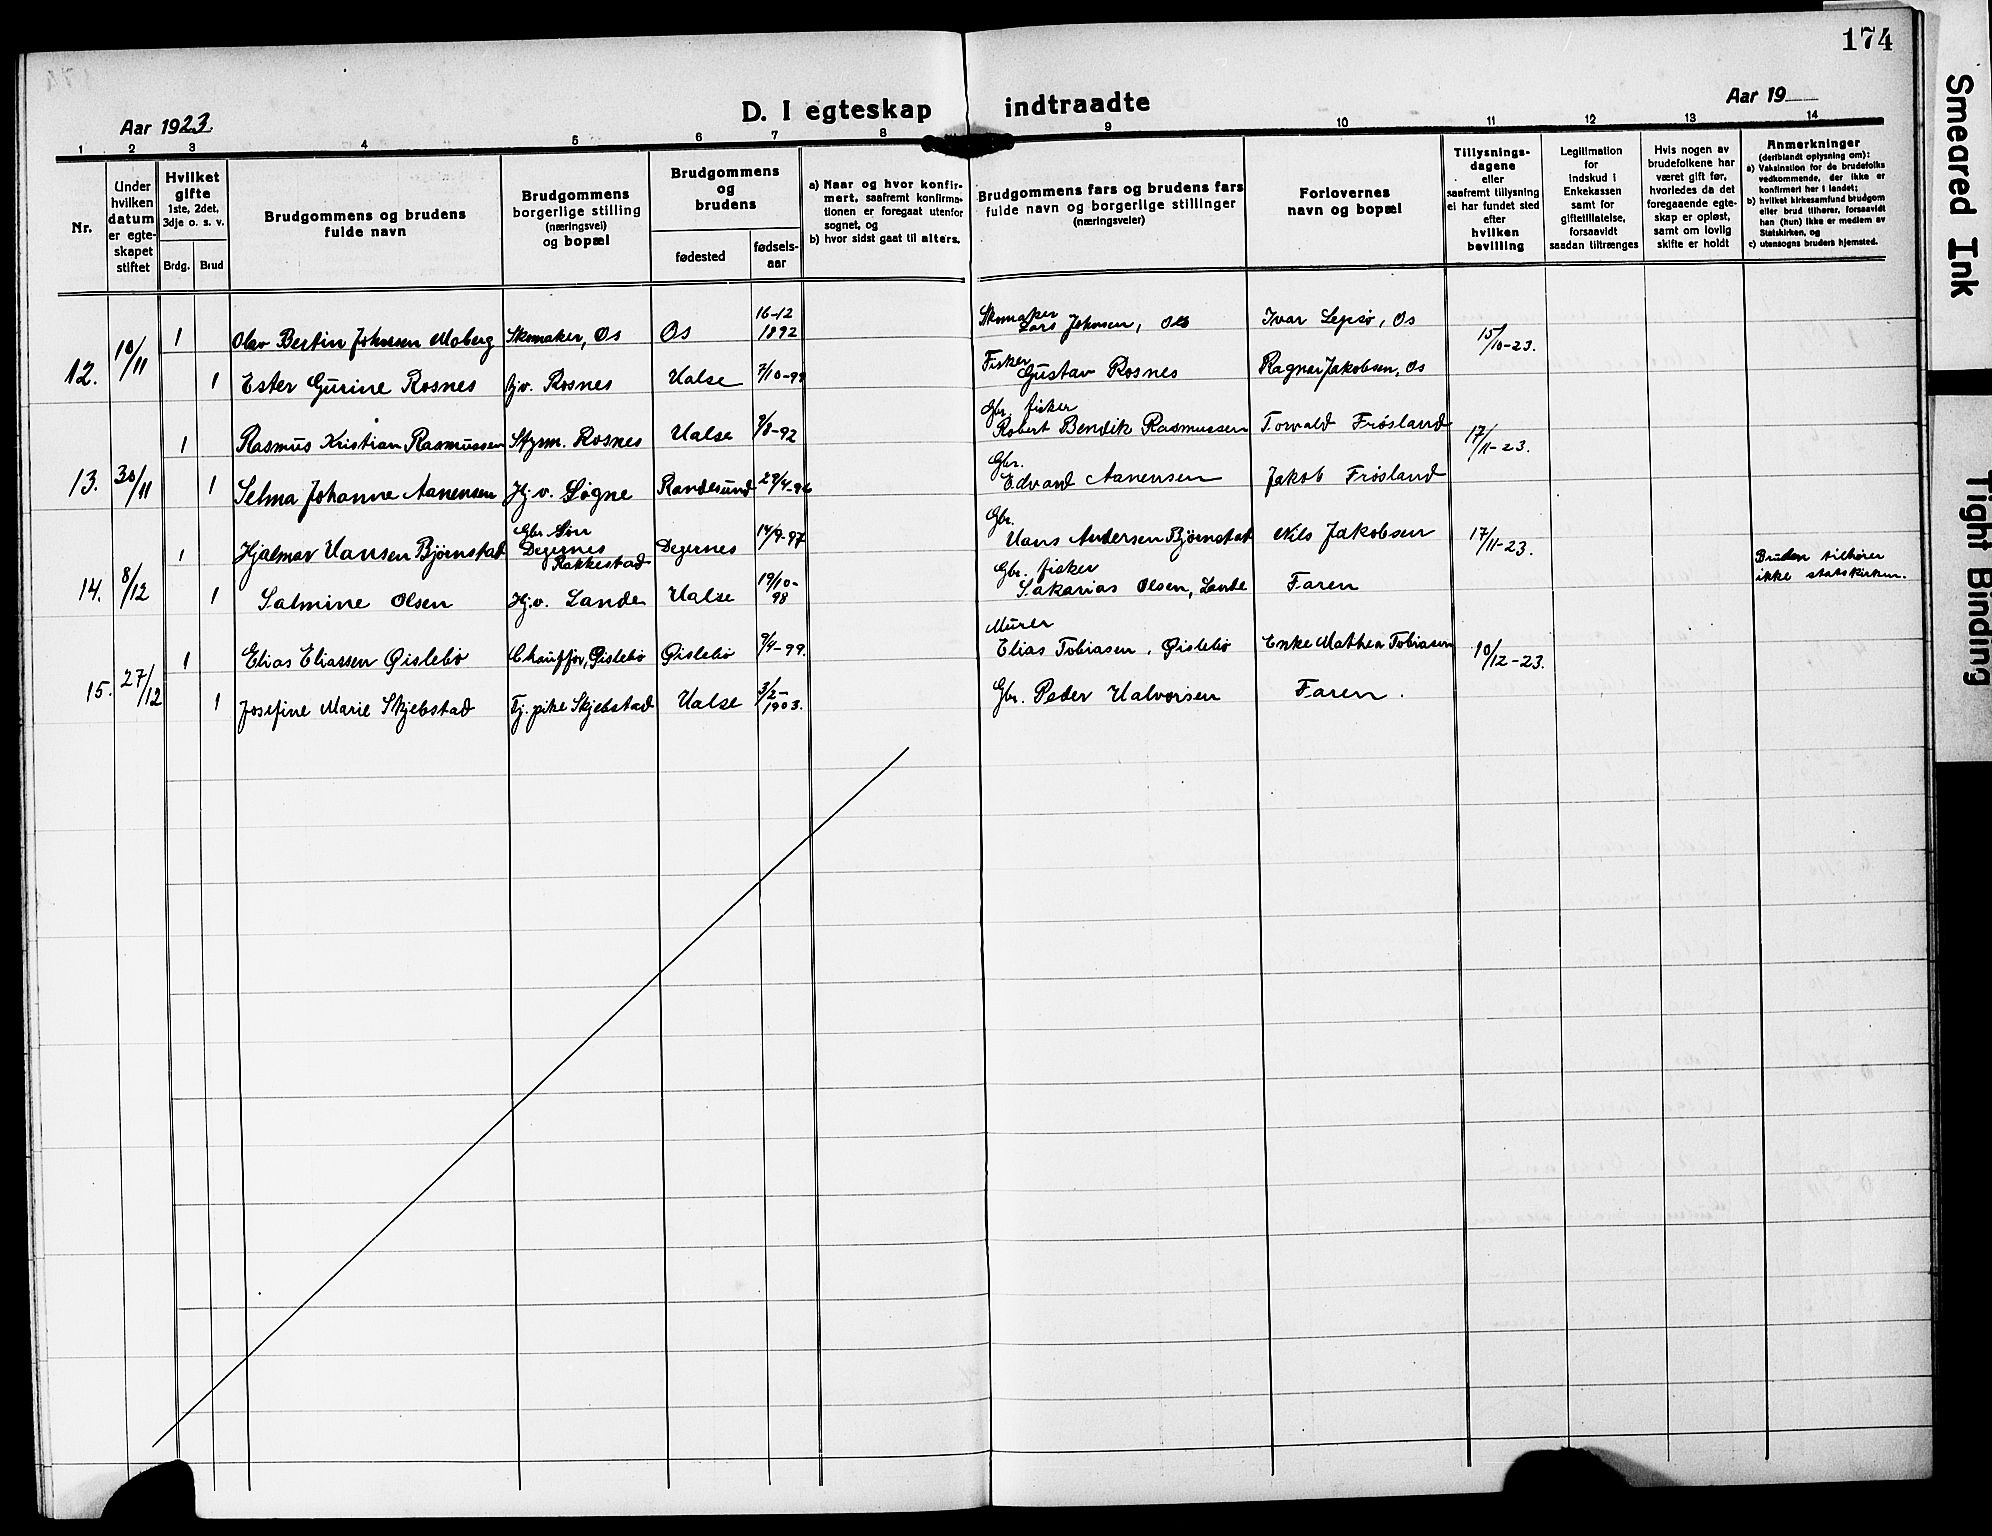 174
Aar 1923
D. I egteskap indtraadte
Aar 19
1 2 3 4 5 6 7 8 9 10 11 12 13 14
Nr.
Under
hvilken
datum
er egte-
skapet
stiftet
Hvilket
gifte
1ste, 2det,
3dje o. s. v.
Brdg. Brud
Brudgommens og brudens
fulde navn
Brudgommens
borgerlige stilling
(næringsvei)
og bopæl
Brudgommens
og
brudens
fødested
fødsels-
aar
a) Naar og hvor konfir-
mert, saafremt konfirma-
tionen er foregaat utenfor
sognet, og
b) hvor sidst gaat til alters.
Brudgommens fars og brudens fars
fulde navn og borgerlige stillinger
(næringsveier)
Forlovernes
navn og bopæl
Tillysnings-
dagene
eller
saafremt tillysning
ei har fundet sted
efter
hvilken
bevilling
Legitimation
for
indskud i
Enkekassen
samt for
giftetillatelse,
forsaavidt
saadan tiltrænges
Hvis nogen av
brudefolkene har
været gift før,
hvorledes da det
foregaaende egte-
skap er opløst,
samt om lovlig
skifte er holdt
Anmerkninger
(deriblandt oplysning om):
a) Vaksination for de brudefolks
vedkommende, der ikke er
konfirmert her i landet;
b) hvilket kirkesamfund brudgom
eller brud tilhører, forsaavidt
han (hun) ikke er medlem av
Statskirken, og
c) utensogns bruders hjemsted.
12. 10/11
1 Olav Bertin Johnsen Moberg Skomaker, Os Os 16-12 1892 Skomaker Lars Johnsen, Os Ivar Lepsø, Os 15/10-23.
1 Ester Gurine Rosnes hjv. Rosnes Halse 7/10-99 Fisker Gustav Rosnes Ragnar Jakobsen, Os
13. 30/11
1 Rasmus Kristian Rasmussen Styrm. Rosnes Halse 9/8-92 Gbr. fisker Robert Bendik Rasmussen Torvald Frøsland 17/11-23.
1 Selma Johanne Aanensen Hj. v. Søgne Randesund 29/4-96 Gbr. Edvard Aanensen Jakob Frøsland
14. 8/12
1 Hjalmar Hansen Bjørnstad Gbr. Søn Degernes Rakkestad Degernes 14/9-97 Gbr. Hans Andersen Bjørnstad Nils Jakobsen 17/11-23.
1 Salmine Olsen Hj.v. Lande Halse 19/10-98 Gbr. fisker Sakarias Olsen, Lande Faren Bruden tilhører
ikke statskirken.
15. 27/12
1 Elias Eliassen Øislebø Chauffør, Øislebø Øislebø 9/4-99. Murer Elias Tobiasen, Øislebø Enke Mathea Tobiasen 10/12-23.
1 Josefine Marie Skjebstad Tj. pike Skjebstad Halse 3/2-1903. Gbr. Peder Halvorsen Faren.
Smeared Ink
Tight Binding